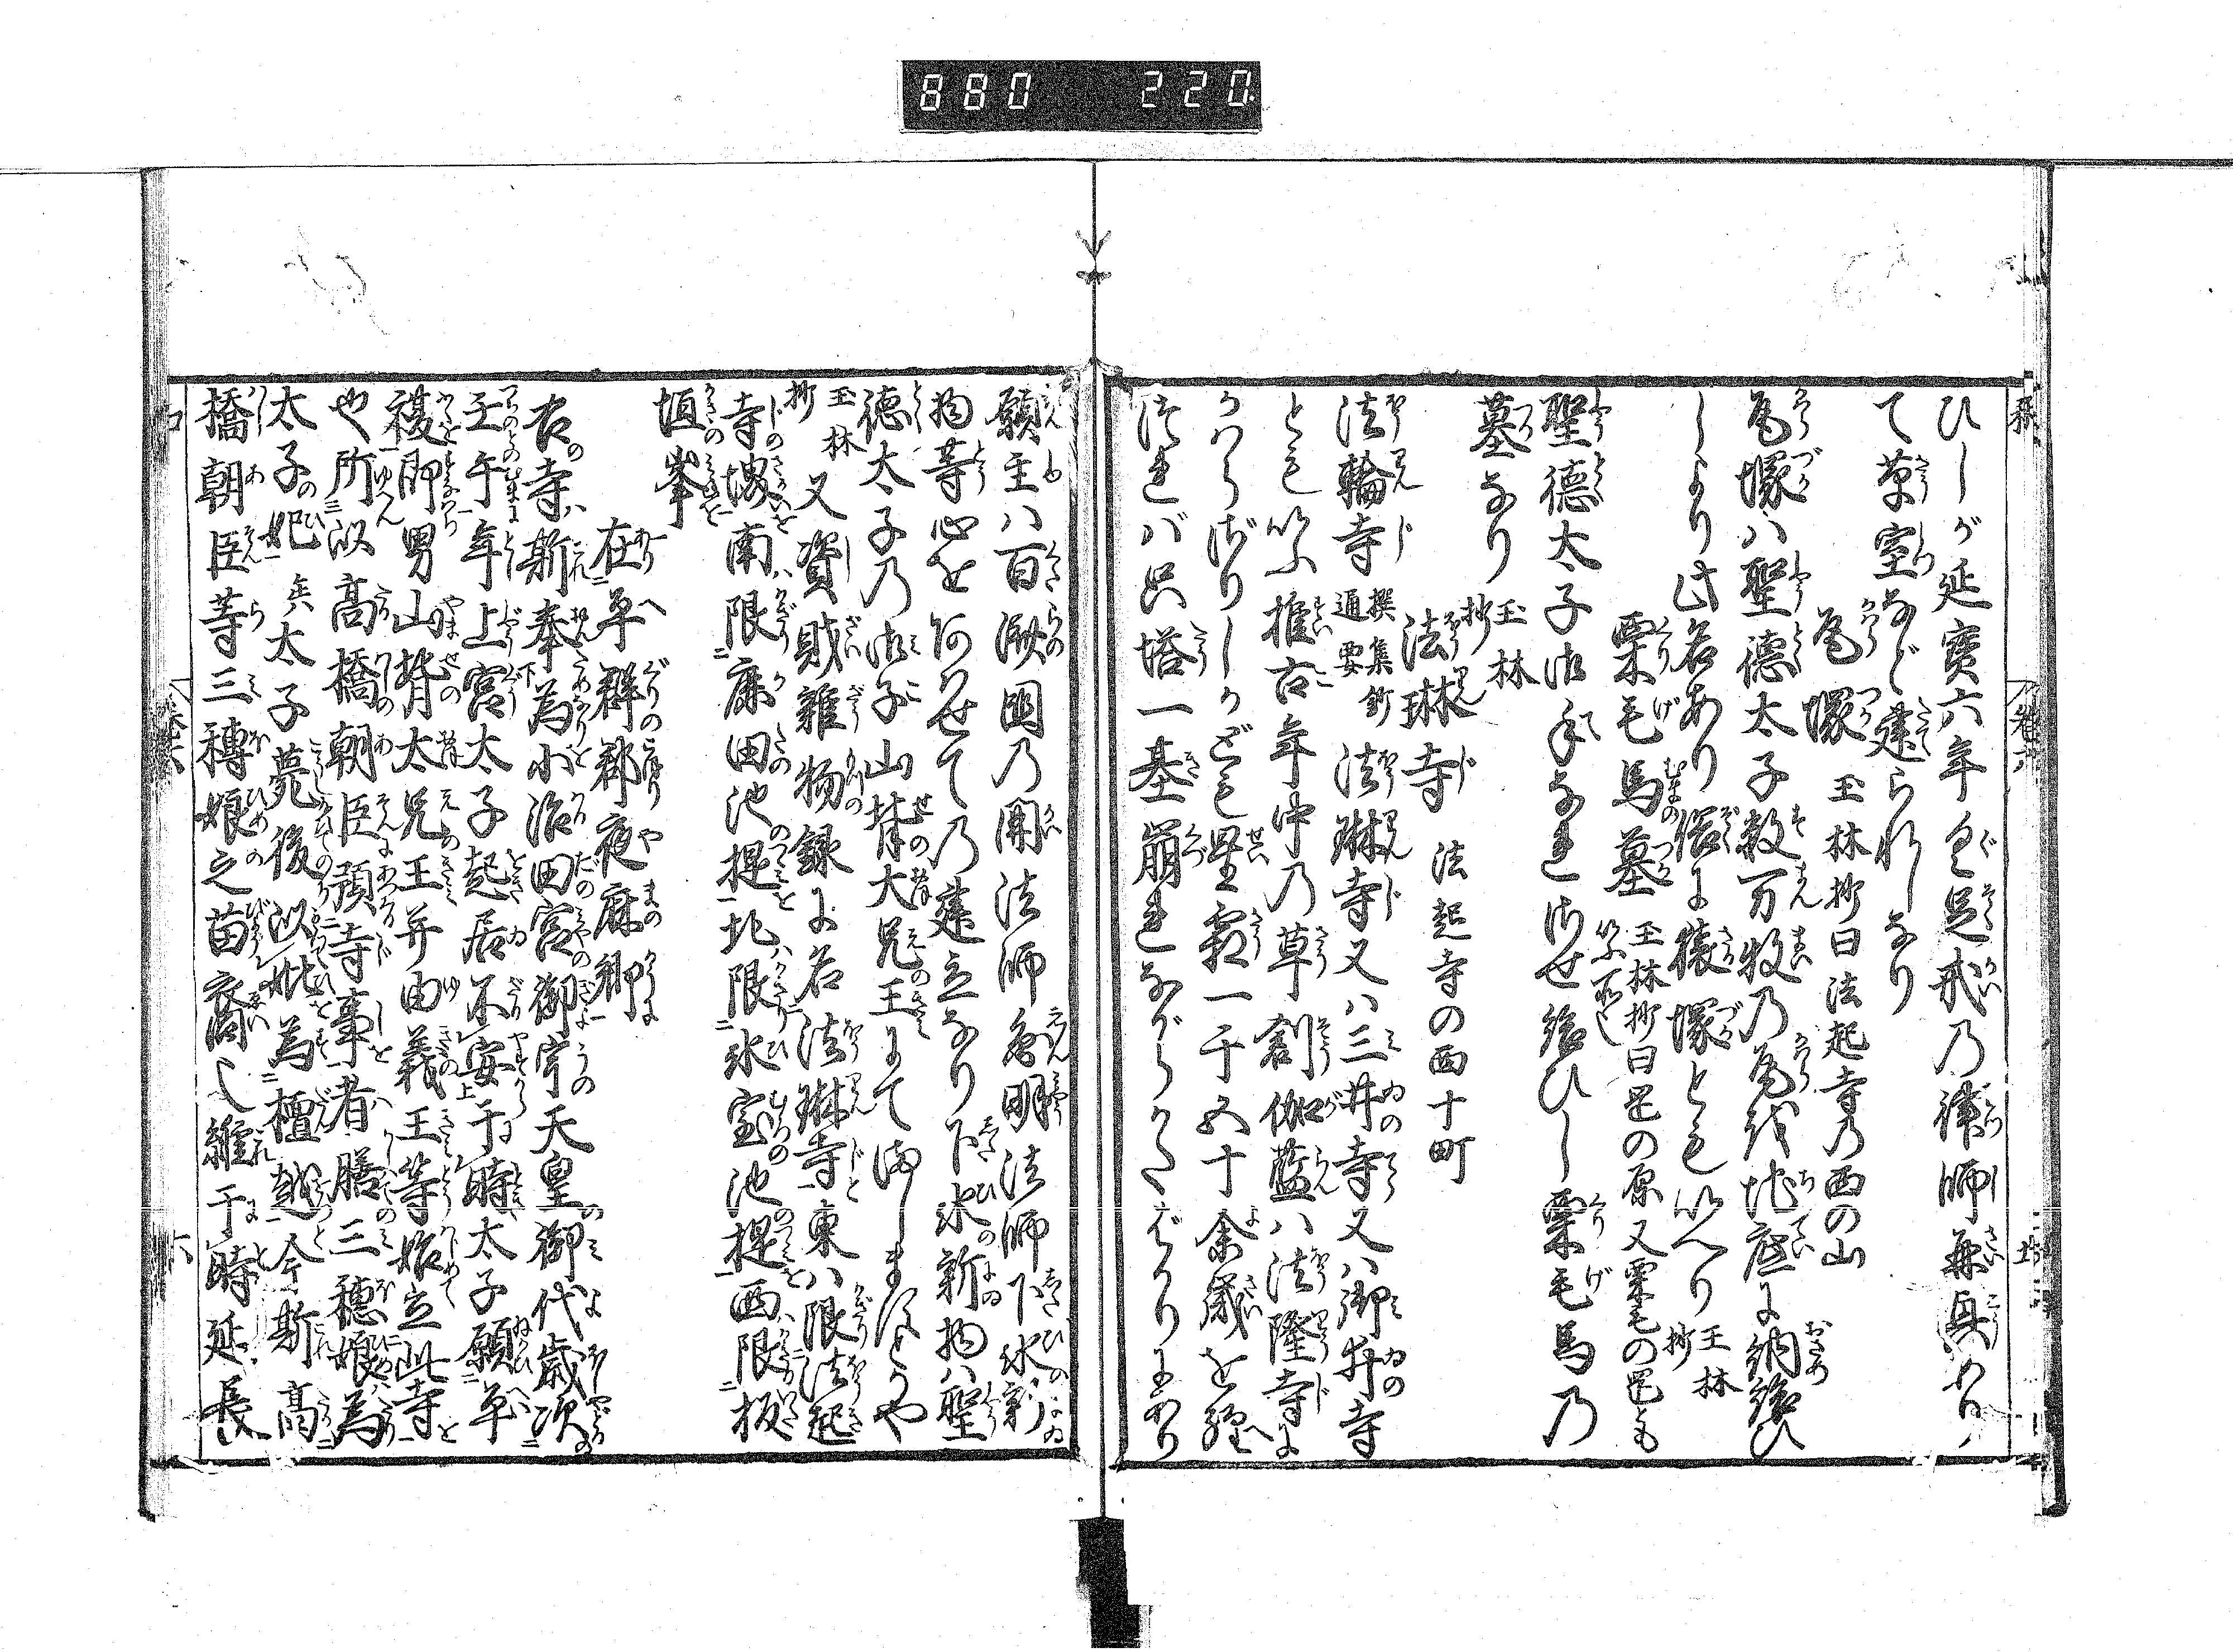 880 220.
ひしが延寳六年具足戒乃律師無臭
て草室など建られしなり
瓦塚 玉林抄曰法起寺乃西の山
瓦塚ハ聖德太子数万牧乃瓦を地底に納給ひ
しより此名あり俗に猿塚ともいへり 玉林抄
栗毛馬墓 玉林抄曰昆の原又栗毛の昆とも
聖德太子御手なれさせ給ひし栗毛馬乃
墓なり 玉林抄
法琳寺 法起寺の西十町
法輪寺 撰集鈔通要 法琳寺又ハ三井寺又ハ御井寺
とも いふ推古年中乃草創伽藍ハ法隆寺に
かはらざりしかども星霜一千五十余歳を經
ぬれバ只塔一基崩れながらかたばかりにあり
願主ハ百濟国乃開法師圓明法師下氷新
物等心をあはせて乃建立なり下氷新物ハ聖
德太子乃御子山背大兄王にてましますとかや
玉林抄 又資財雜物録に名法琳寺東ハ限法起
寺堺南ハ限廉田池堤北ハ限氷室池堤西ハ限板
垣峯
在平群郡夜麻郷
右寺斯奉為小治田宮御宇天皇御代歳次
壬午年上宮太子起居不安于時太子願平
複即男山背大兄王并由義王等始立此寺
也所以高橋朝臣預寺事者膳三穗娘為
太子妃矣太子薨後以妣為檀越今斯高
橋朝臣等三穗娘之苗裔也維于時延長